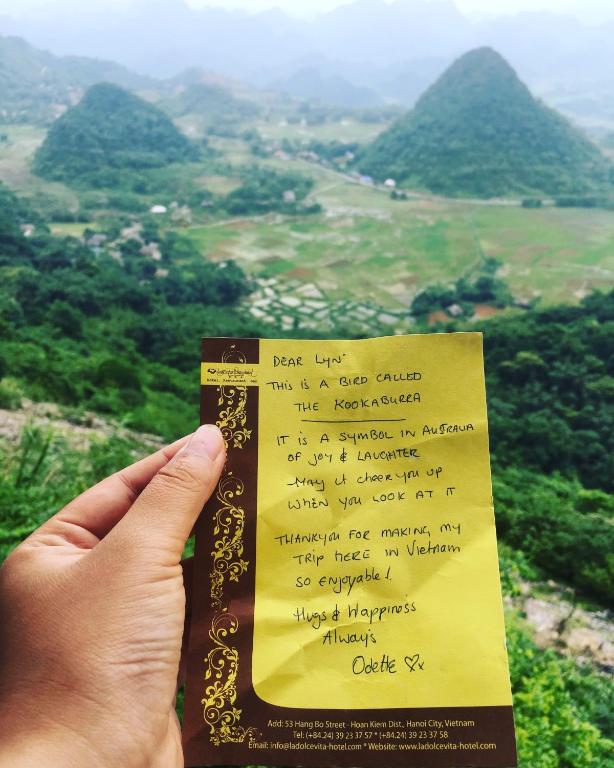 DEAR LYN
THIS IS A BIRD CALLED
THE KOOKABURRA
IT IS A SYMBOL IN AUSTRALIA
OF JOY & LAUGHTER
MAY IT CHEER YOU UP
WHEN YOU LOOK AT IT
THANKYOU FOR MAKING MY
TRIP HERE IN VIETNAM
SO ENJOYABLE!
Hugs & Happiness
Always
Odette ♡x
Add: 53 Hang Bo Street - Hoan Kiem Dist., Hanoi City, Vietnam
Tel: (+84.24) 39 23 37 57 * (+84.24) 39 23 37 58
Email: info@ladolcevita-hotel.com * Website: www.ladolcevita-hotel.com